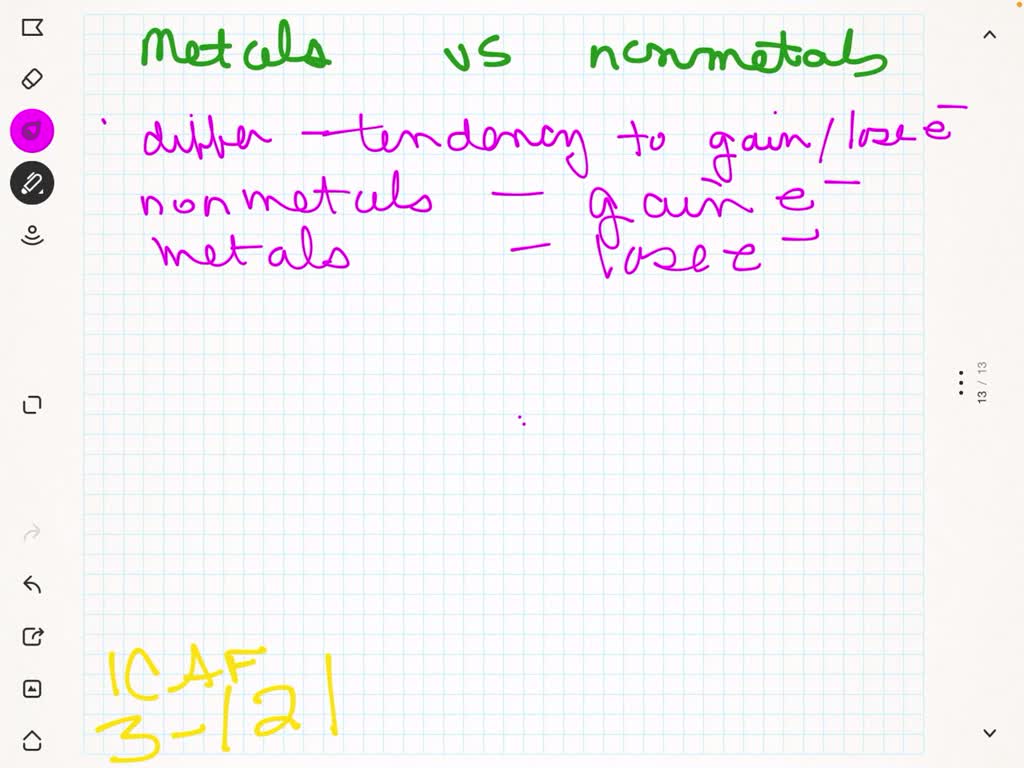 Metals vs nonmetals
· differ - tendency to gain/lose e⁻
nonmetals - gain e⁻
metals - lose e⁻
13 / 13
ICAF
3-121